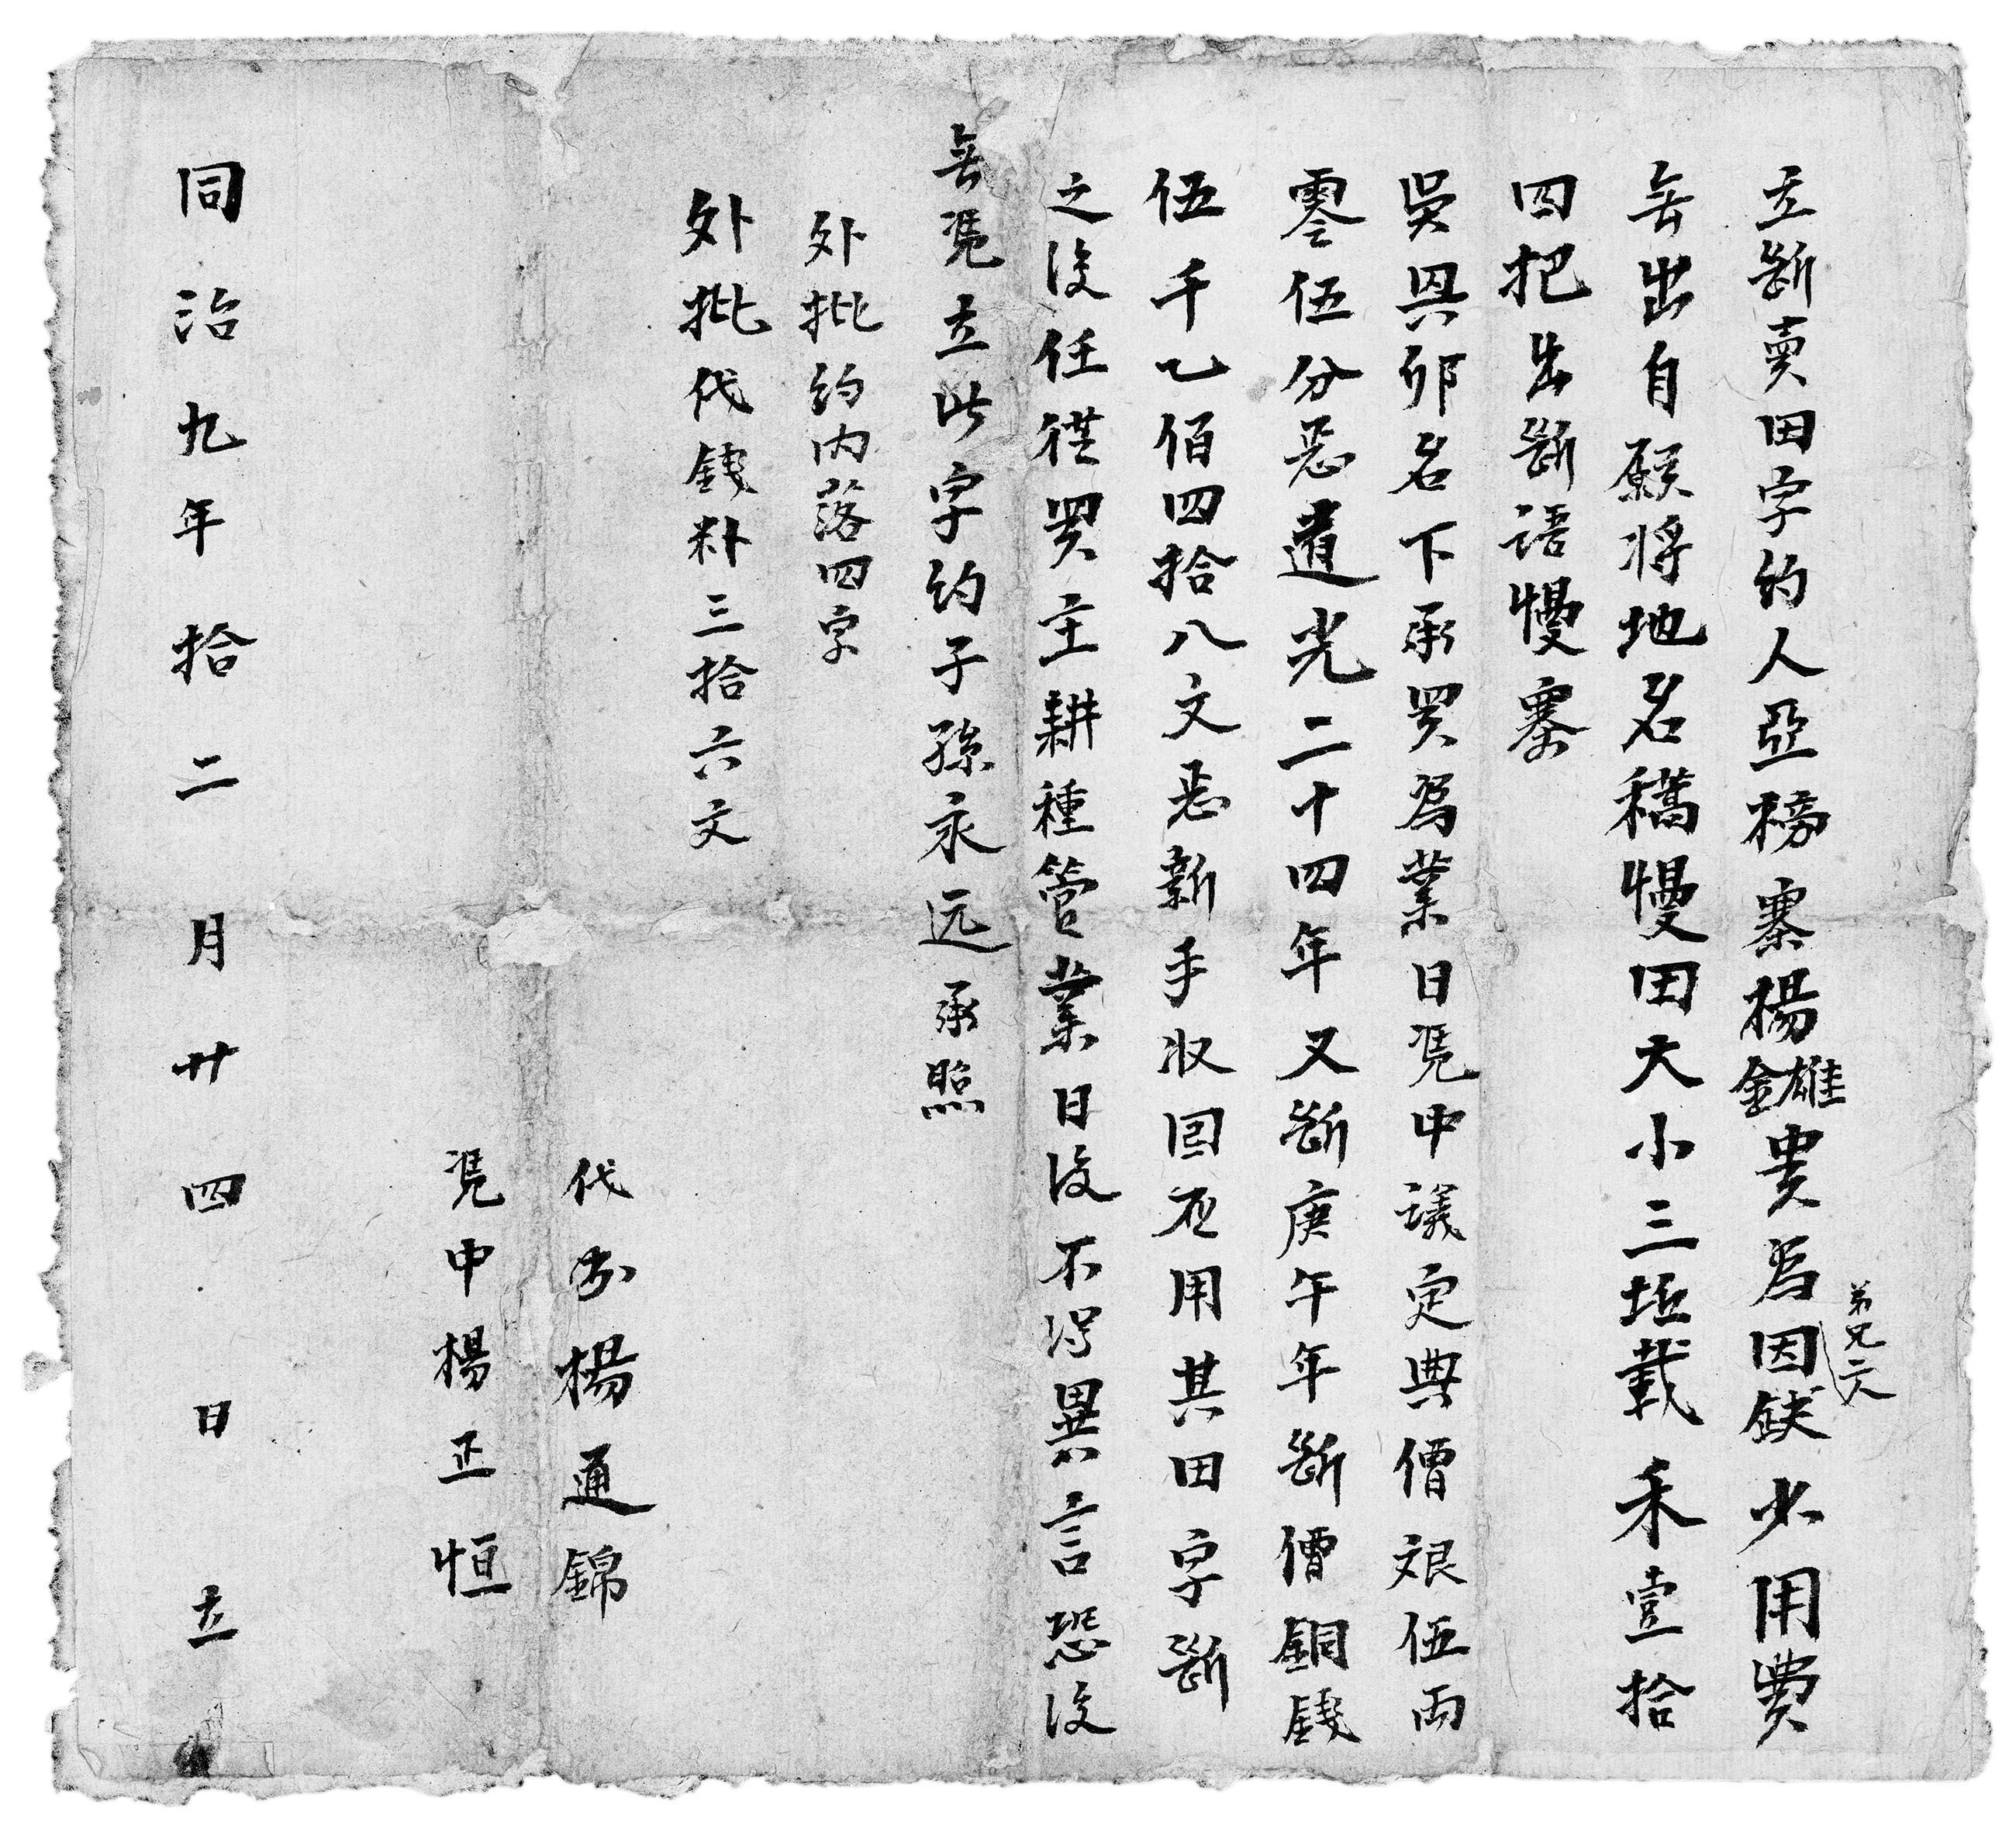 立斷賣田字約人亞榜寨楊雄金貴為因缺少用費
弟兄二人
無出自願將地名䅵慢田大小三坵載禾壹拾
四把出斷語慢寨
吳興卯名下承買為業日凴中議定典價艮伍両
零伍分㤙道光二十四年又斷庚午年斷價銅錢
伍千乙佰四拾八文㤙新手收囬应用其田字斷
之後任從買主耕種管業日後不淂異言恐後
無凴立此字約子孫永远承照
外批約内落四字
外批代錢朴三拾六文
代書楊通錦
凴中楊正恒
同治九年拾二月廿四日立